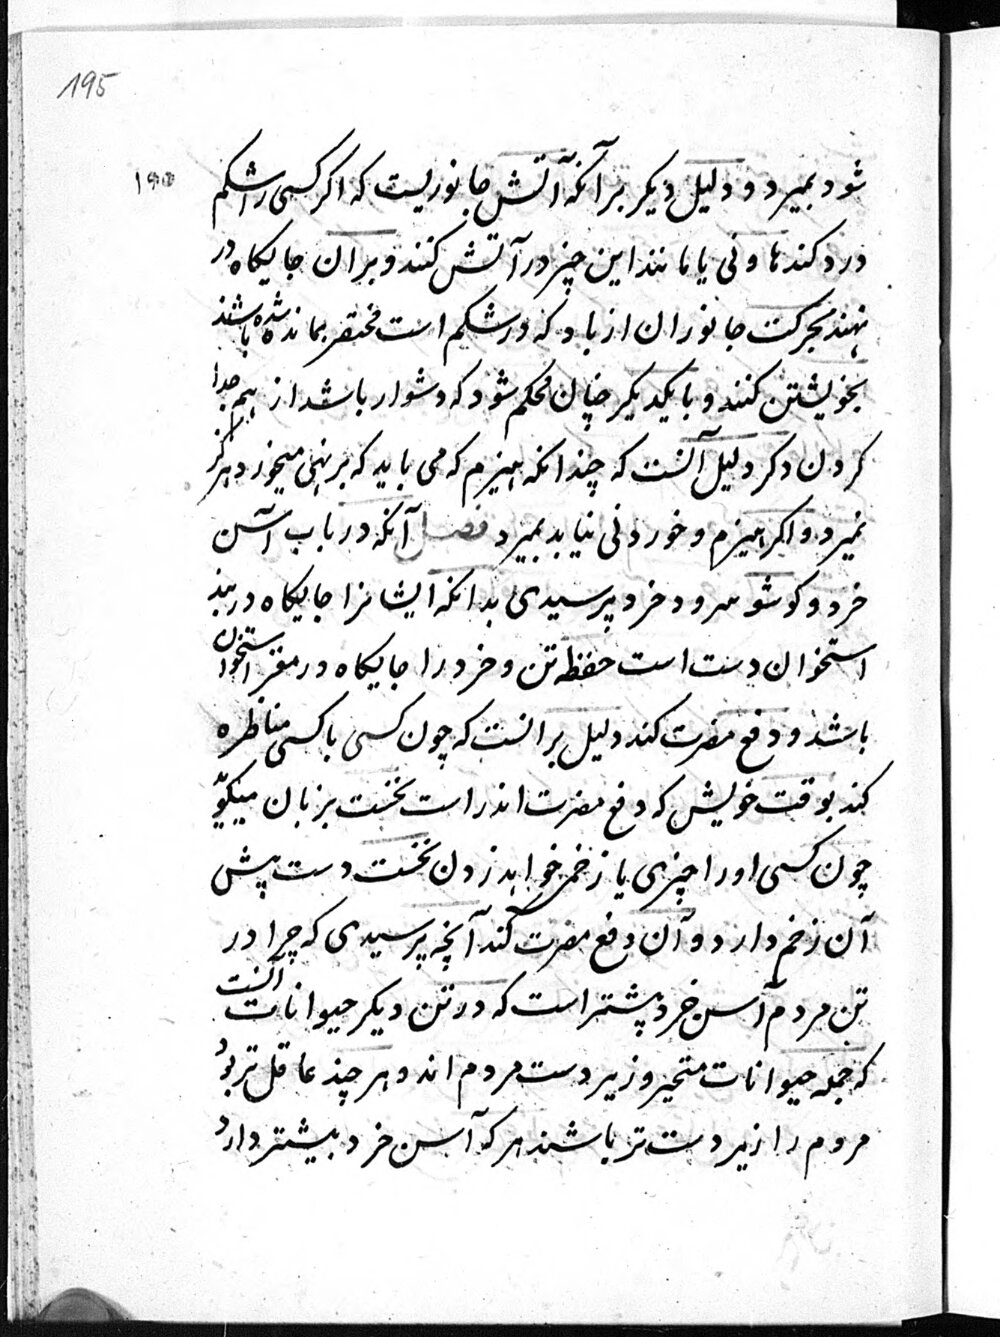 195
۱۹۵
شود بمیرد و دلیل دیکر بر آنکه آتش جانوریست که اکر کسی را شکم
درد کند هاونی یا مانند این چیز در آتش کنند و بران جایکاه در
نهند بحرکت جانوران از باد که در شکم است مختصر بمانده شده باشند
بخویشتن کنند و با یکدیکر چنان محکم شود که دشوار باشد از هم جدا
کردن دکر دلیل آنست که چندانکه هیزم که می باید که بر نهی میخورد هرکز
نمیرد و اکر هیزم و خوردنی نیابد بمیرد فصل آنکه در باب آسن
خرد و کوشو سرود خرد پرسیدی بدانکه ایشانرا جایکاه در بند
استخوان دست است حفظه تن و خرد را جایکاه در مغز استخوان
باشد و دفع مضرت کند دلیل بر انست که چون کسی با کسی مناظره
کند بوقت خویش که دفع مضرت اندر است نخست بزبان میکوید
چون کسی اورا چیزی یا زخمی خواهد زدن نخست دست پیش
آن زخم دارد و آن دفع مضرت کند آنچه پرسیدی که چرا در
تن مردم آسن خرد پشتر است که در تن دیکر حیوانات آنست
که جمله حیوانات متحیر و زیر دست مردم اند و هر چند عاقل تر بود
مردم را زیر دست تر باشند هر که آسن خرد بیشتر دارد